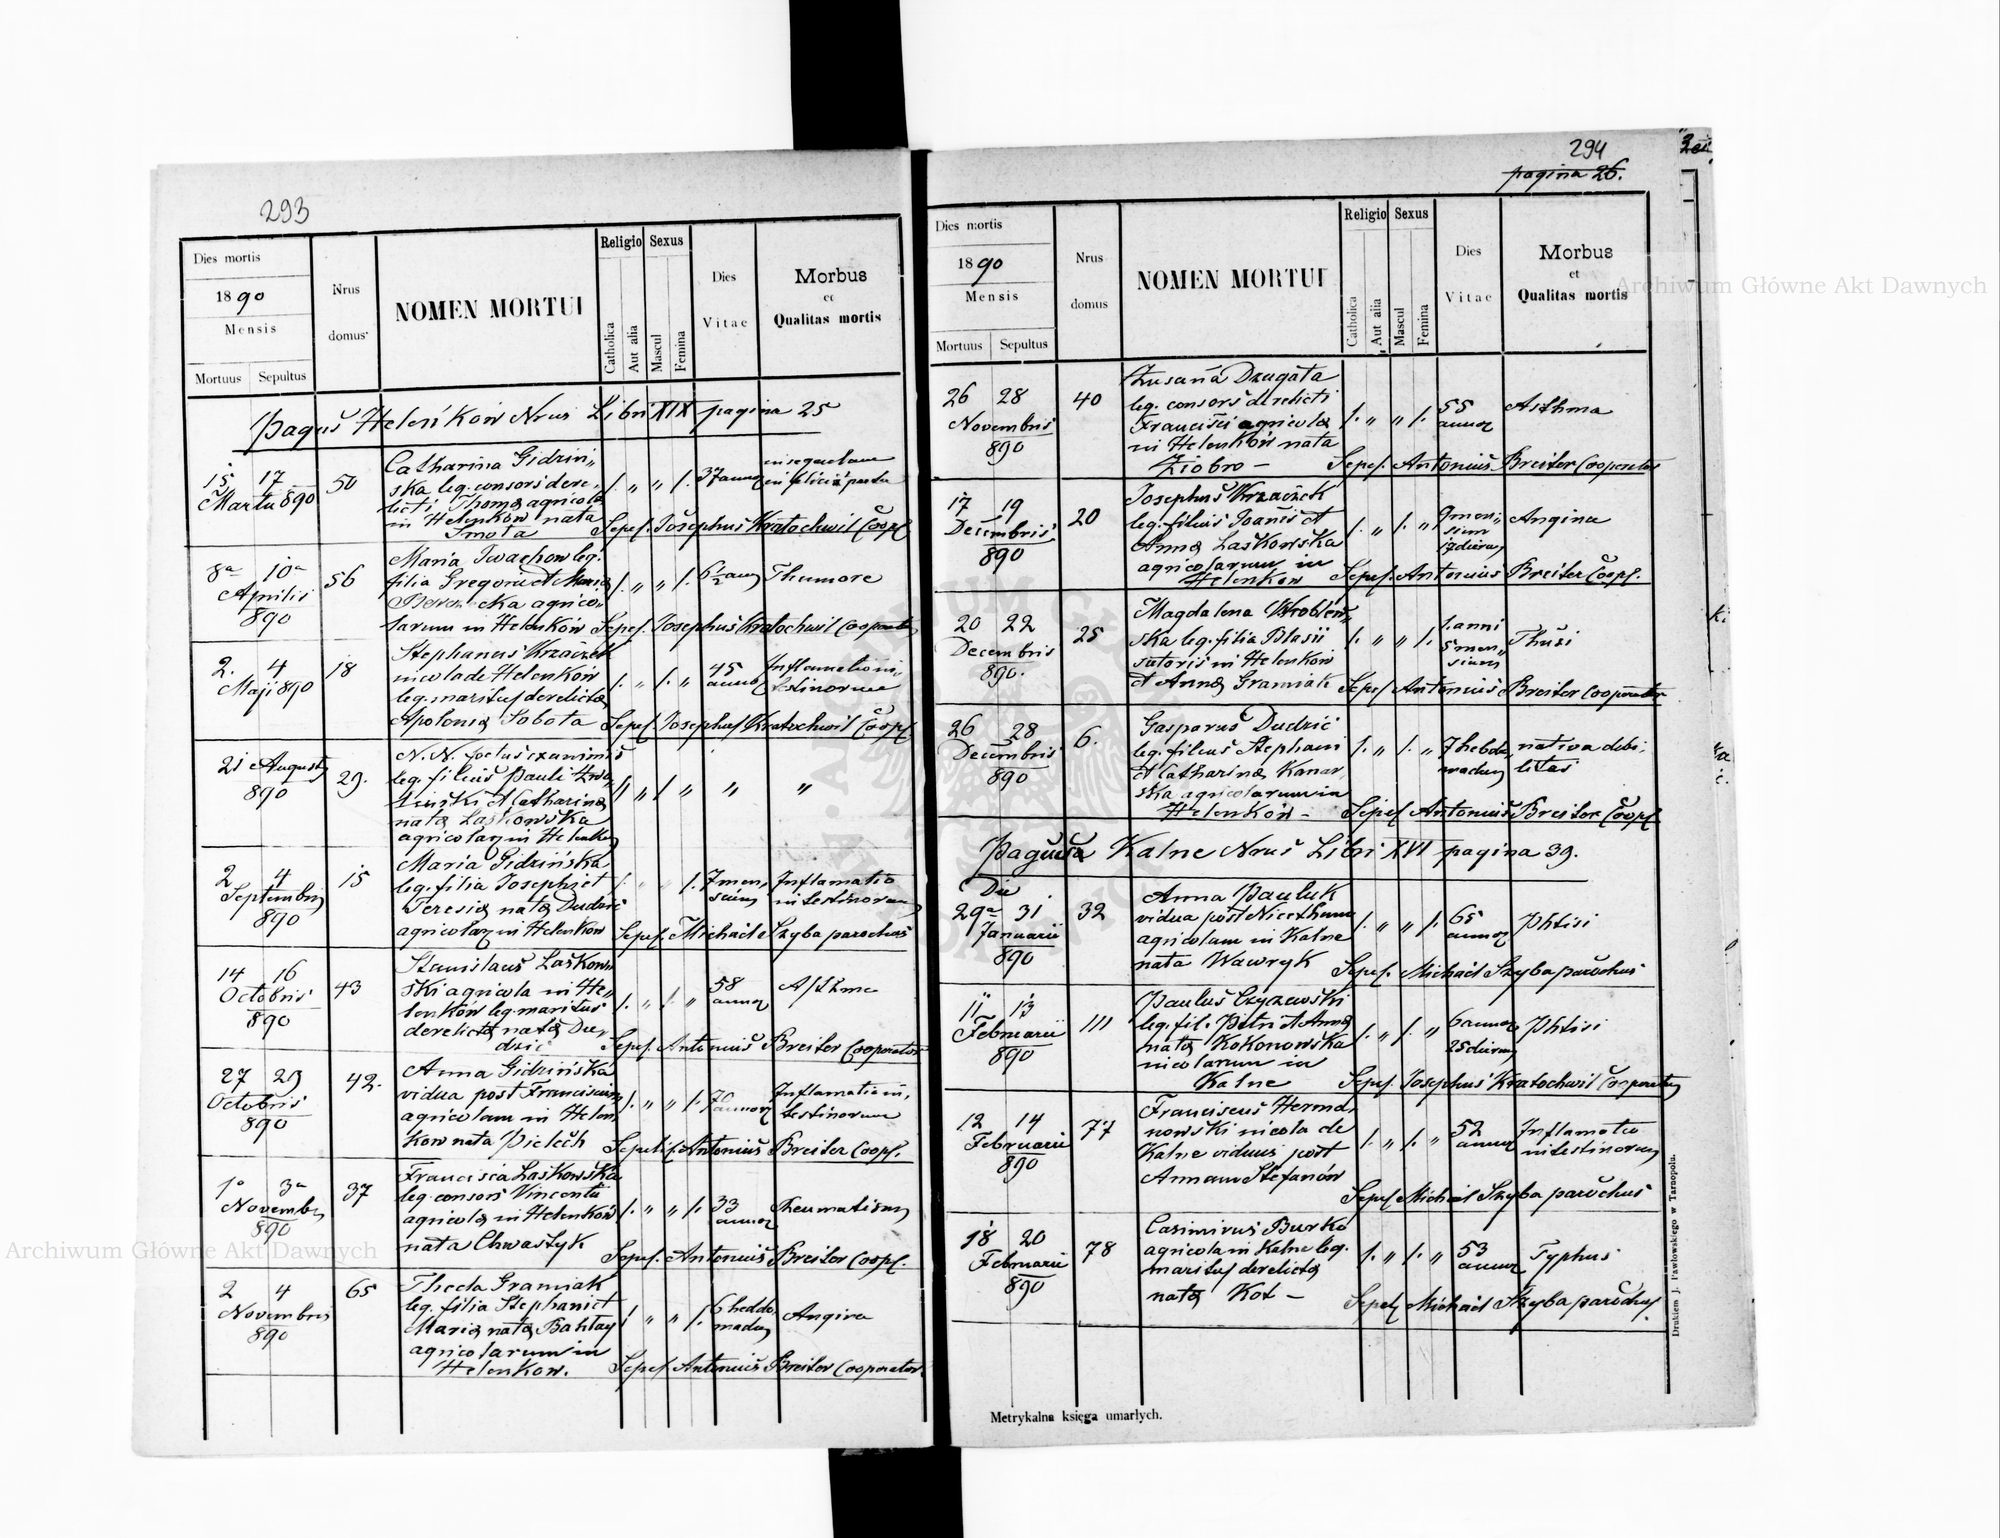 293
Dies mortis
1890
Mensis
Mortuus Sepultus
Nrus domus
NOMEN MORTUI
Religio
Catholica
Aut alia
Sexus
Mascul
Femina
Dies Vitae
Morbus et Qualitas mortis
Pagus Helenków Nrus Libri XIX pagina 25
15 17
Martii 890
50
Catharina Gidziń„
ska leg. consors dere„
licti Thomæ agricolæ
in Helenków nata
Smota
37 annor
Sepel. Josephus Kratochwil Coopl.
8a 10a
Aprilis
890
56
Maria Iwachow leg.
filia Gregorii et Mariæ
agrico„
larum in Helenków
6½ ann
Thumore
Sepel. Josephus Kratochwil Cooperator
2. 4
Maji 890
18
Stephanus Krzaczek
nicola de Helenków
leg. maritus derelictæ
Apoloniæ Sobota
45
annor
Inflamatio in„
testinorum
Sepel. Josephus Kratochwil Coopl.
21 Augusti
890
29.
N. N. foetus exanimis
leg. filius Pauli
et Catharinæ
natæ Laskowska
agricolar in Helenków
2 4
Septembris
890
15
Maria Gidzińska
leg. filia Josephi et
Teresiæ natæ Dudzic
agricolar in Helenków
7 men„
sium
Inflamatio
intestinorum
Sepel. Michael Szyba parochus
14 16
Octobris
890
43
Stanislaus Laskow„
ski agricola in He„
lenków leg. maritus
derelictæ natæ Du„
dzic
58
annor
Asthma
Sepel. Antonius Breiter Cooperator
27 29
Octobris
890
42.
Anna Gidzińska
vidua post Franciscum
agricolam in Helen„
kow nata Pielech
70
annor
Inflamatio in„
testinorum
Sepeli. Antonius Breiter Coopl.
1a 3a
Novembris
890
37
Francisca Laskowska
leg. consors Vincentii
agricolæ in Helenków
nata Chwastyk
33
annor
Reumatism
Sepel. Antonius Breiter Coopl.
2 4
Novembris
890
65
Thecla Gramiak
leg. filia Stephani et
Mariæ natæ
agricolarum in
Helenkow.
6 hebdo„
madar
Angina
Sepel. Antonius Breiter Cooperator
294
pagina 26.
Dies mortis
1890
Mensis
Mortuus Sepultus
Nrus domus
NOMEN MORTUI
Religio
Catholica
Aut alia
Sexus
Mascul
Femina
Dies Vitae
Morbus et Qualitas mortis
26 28
Novembris
890
40
Zusana Dzugała
leg. consors derelicti
Francisci agricolæ
in Helenków nata
Ziobro –
55
annor
Asthma
Sepel. Antonius Breiter Cooperator
17 19
Decembris
890
20
Josephus Krzaczek
leg. filius Joanis et
Annæ Laskowska
agricolarum in
Helenkow
9 men„
sium
17 dierum
Angina
Sepel. Antonius Breiter Coopl.
20 22
Decembris
890.
25
Magdalena Wroblew„
ska leg. filia Blasii
sutoris in Helenków
et Annæ Gramiak
1. anni
5 men„
sium
Thusi
Sepel Antonius Breiter Cooperator
26 28
Decembris
890
6.
Gasparus Dudzic
leg. filius Stephani
et Catharinæ Kanar„
ska agricolarum in
Helenków –
7 hebdo„
madum
nativa debi„
litas
Sepel Antonius Breiter Coopl.
Kalne Nrus Libri XVI pagina 39.
Die
29a 31
Januarii
890
32
Anna Pauluk
vidua post
agricolam in Kalne
nata Wawryk
65
annor
Phtisi
Sepel. Michael Szyba parochus
11 13
Februarii
890
111
Paulus Czyzewski
leg. fil. Petri et Annæ
natæ Kokonowska
nicolarum in
Kalne
6 annor
25 dierum
Phtisi
Sepel. Josephus Kratochwil Cooperator
12 14
Februarii
890
77
Franciscus Herma„
nowski nicola de
Kalne viduus post
Annam Stefanów
52
annor
Inflamatio
intestinorum
Sepel Michael Szyba parochus
18 20
Februarii
890
78
Casimirus Burko
agricola in Kalne leg.
maritus derelictæ
natæ Kot –
53
annor
Typhus
Sepel Michael Szyba parochus.
Metrykalna księga umarłych.
Drukiem J. Pawłowskiego w Tarnopolu.
Archiwum Główne Akt Dawnych
Archiwum Główne Akt Dawnych